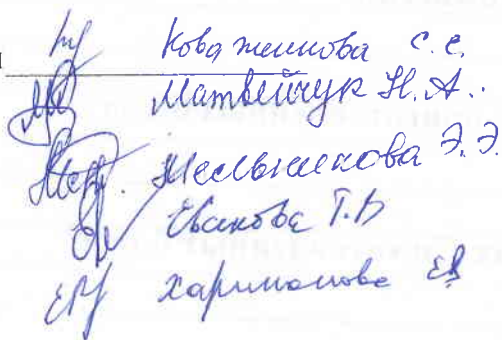 Коваженкова С.С.
Матвейчук Н.А.
Мельникова Э.Э.
Евакова Т.В
Харитонова ЕВ